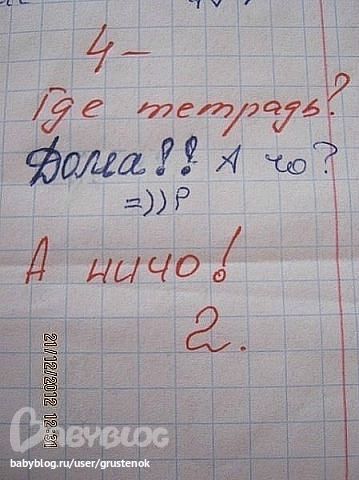 4-
Где тетрадь?
Дома!! А чо?
=))Р
А ничо!
2.
21/12/2012 12:31
BABYBLOG
babyblog.ru/user/grustenok